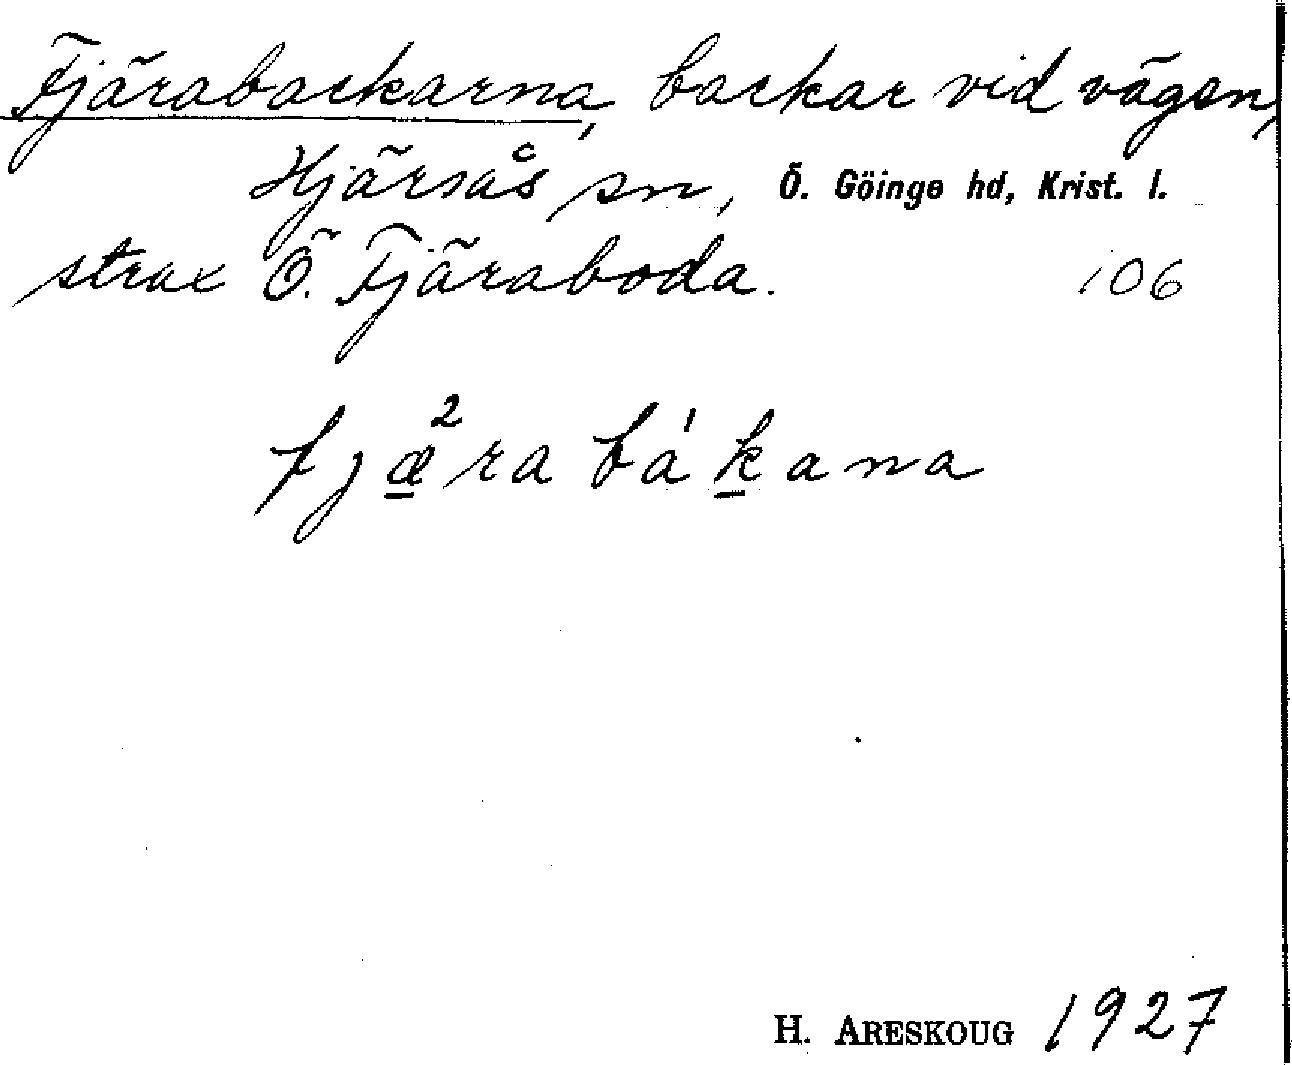 Fjärabackarna, backar vid vägen,
Hjärsås sn, Ö. Göinge hd, Krist. l.
strax Ö. Fjäraboda. 106
fjæ²ra bá k̲ana
H. ARESKOUG 1927